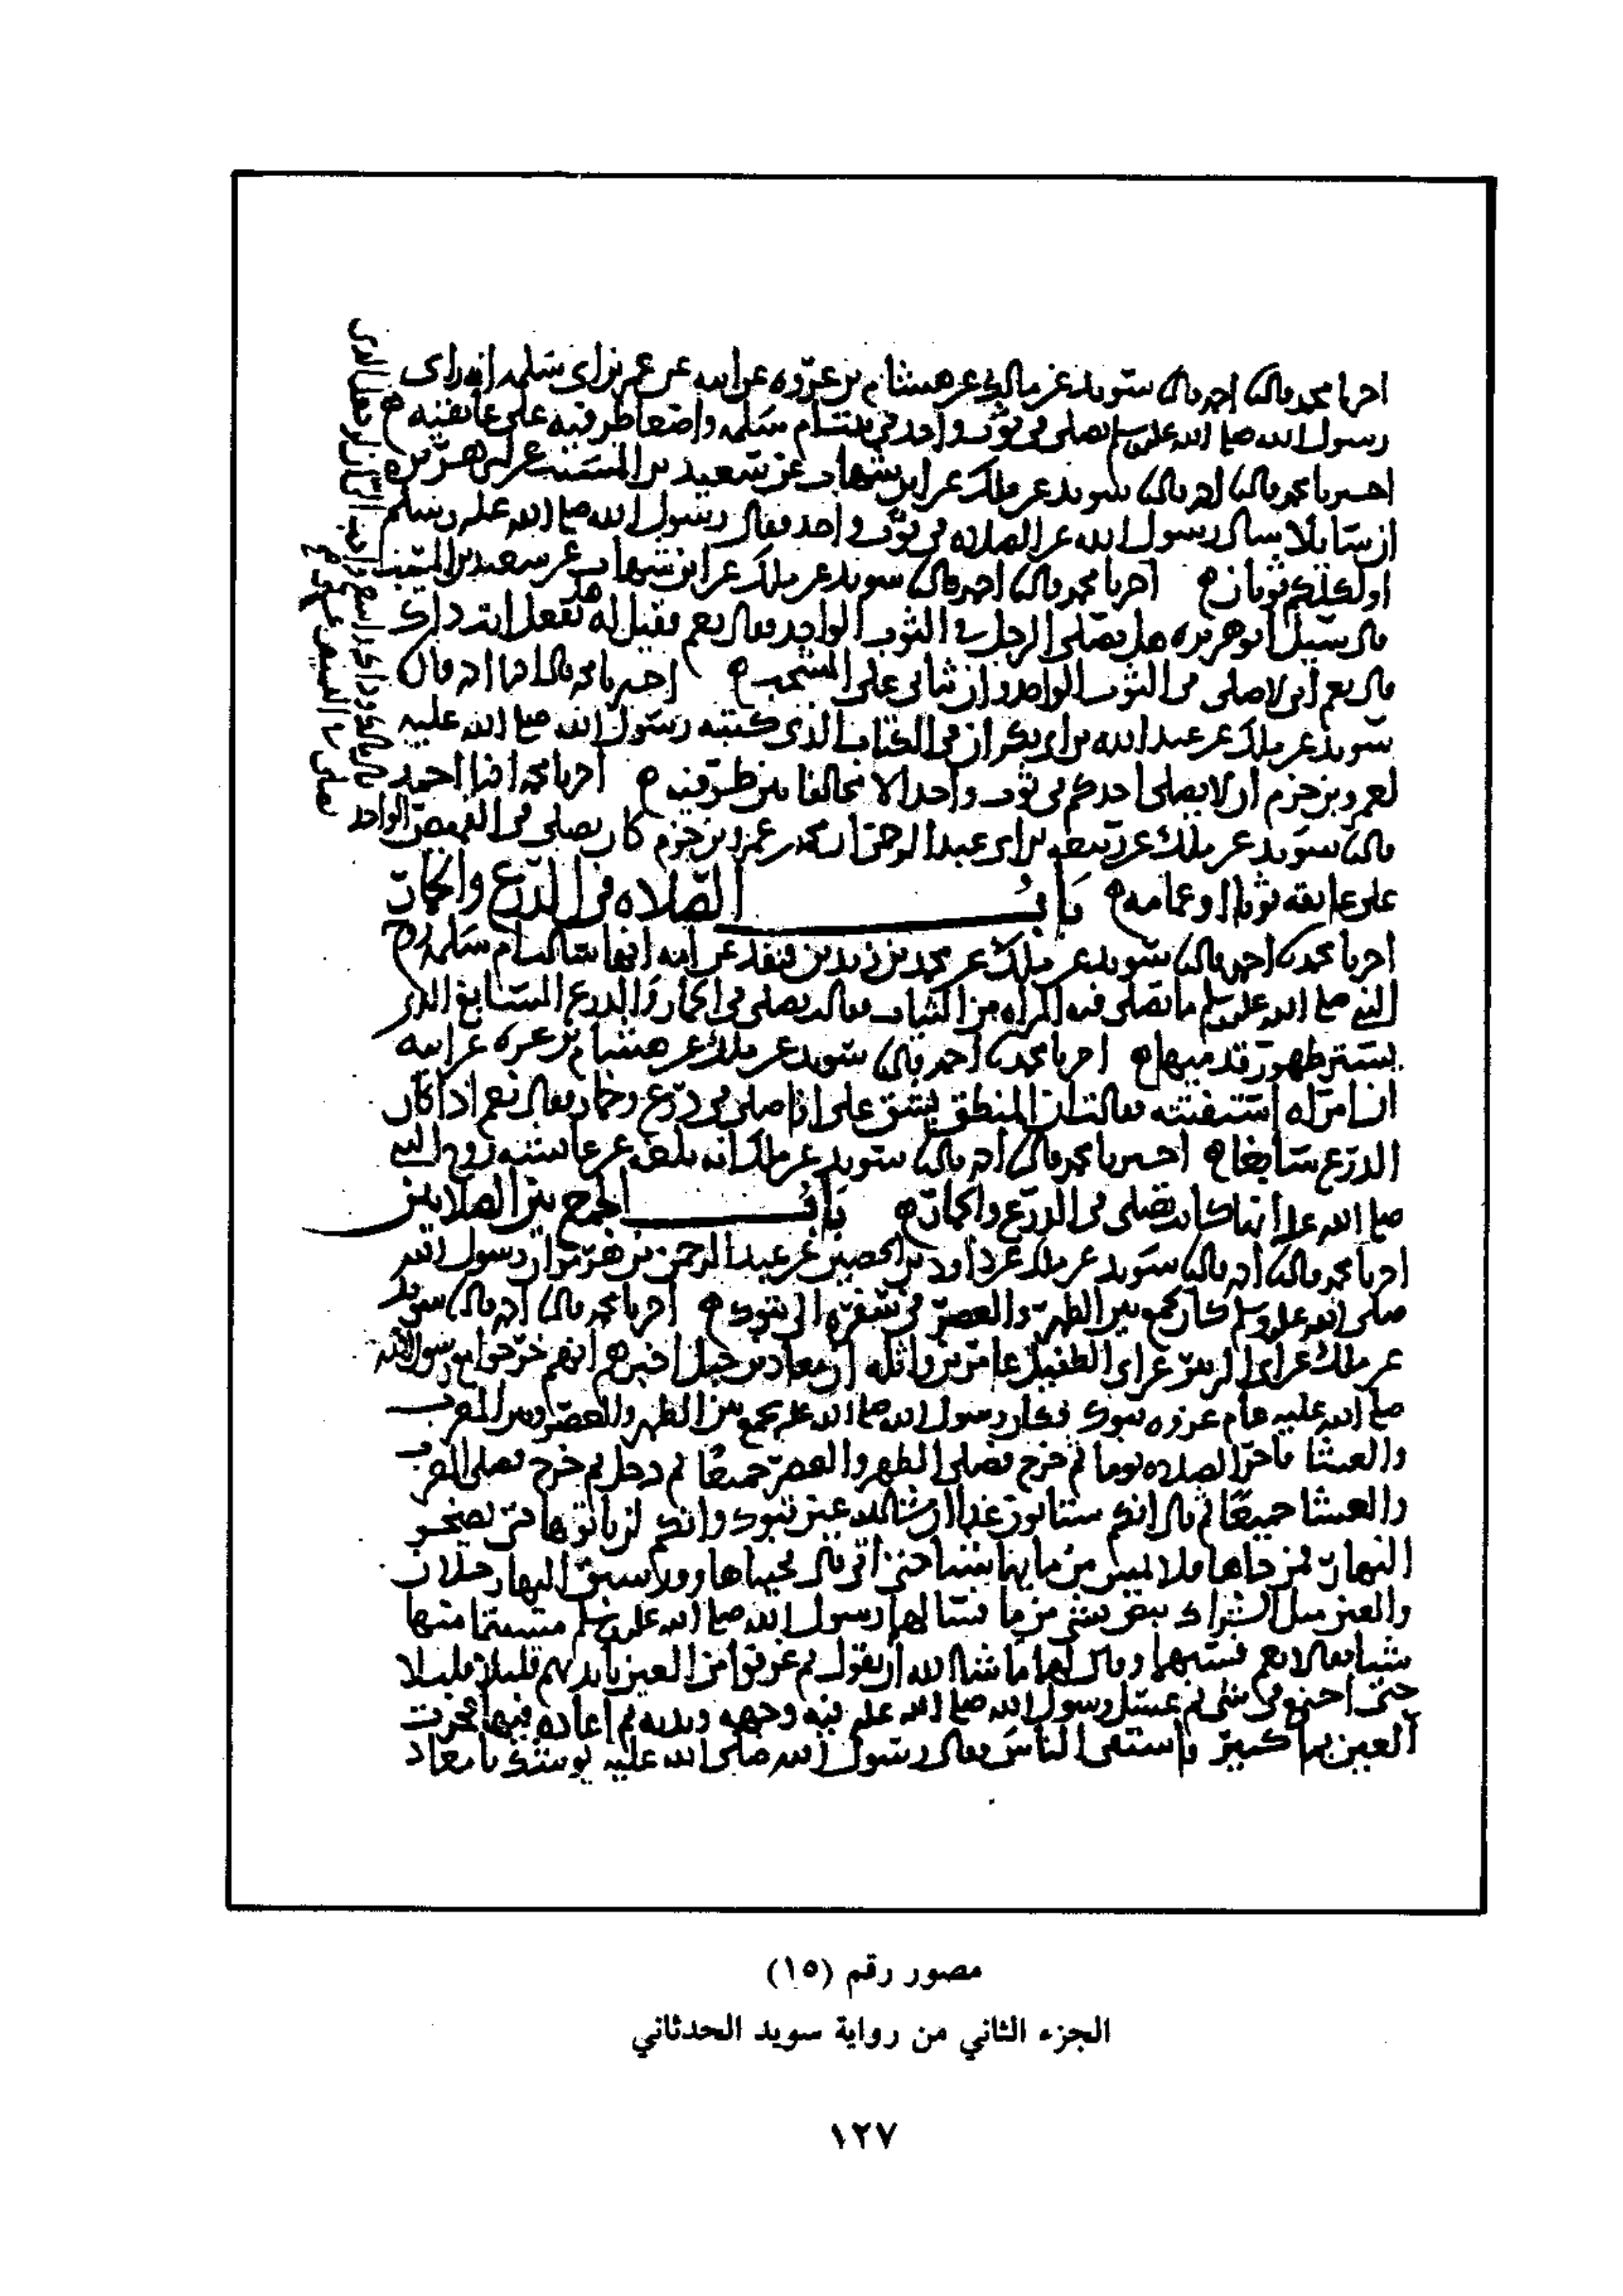 اخبرنا محمد قال اخبرنا احمد قال سويد عن مالك عن هشام بن عروه عن ابيه عن عمر بن ابى سلمه انه راى
رسول الله صلى الله عليه وسلم يصلى فى ثوب واحد فى بيت ام سلمه واضعا طرفيه على عاتقيه
اخبرنا محمد قال احمد قال سويد عن ملك عن ابن شهاب عن سعيد بن المسيب عن ابى هريره
ان سايلا سال رسول الله عن الصلاه فى ثوب واحد فقال رسول الله صلى الله عليه وسلم
اولكلكم ثوبان اخبرنا محمد قال احمد قال سويد عن ملك عن ابن شهاب عن سعيد بن المسيب
قال سيل ابو هريره هل يصلى الرجل فى الثوب الواحد فقال نعم فقيل له هل تفعل انت ذاك
قال نعم انى لاصلى فى الثوب الواحد وان ثيابى على المشجب اخبرنا محمد قال احمد قال
سويد عن ملك عن عبد الله بن ابى بكر ان فى الكتاب الذى كتبه رسول الله صلى الله عليه
لعمرو بن حزم ان لا يصلى احدكم فى ثوب واحد الا مخالفا بين طرفيه اخبرنا محمد احمد
قال سويد عن ملك عن ربيعه بن ابى عبد الرحمن ان محمد بن عمرو بن حزم كان يصلى فى القميص الواحد
على عاتقه ثوبا او عمامه باب الصلاه فى الدرع والخمار
اخبرنا محمد احمد قال سويد عن ملك عن محمد بن زيد بن قنفذ عن امه انها سالت ام سلمه زوج
النبى صلى الله عليه وسلم ما تصلى فيه المراه من الثياب فقالت تصلى فى الخمار والدرع السابغ الذى
يستر ظهور قدميها اخبرنا محمد احمد قال سويد عن ملك عن هشام بن عروه عن ابيه
ان امراه استفتته فقالت ان المنطق يشق على افاصلى فى درع وخمار فقال نعم اذا كان
الدرع سابغا اخبرنا محمد قال احمد قال سويد عن ملك انه بلغه عن عايشه زوج النبى
صلى الله عليه انها كانت تصلى فى الدرع والخمار باب الجمع بين الصلاتين
اخبرنا محمد قال احمد قال سويد عن ملك عن داود بن الحصين عن عبد الرحمن بن هرمز ان رسول الله
صلى الله عليه وسلم كان يجمع بين الظهر والعصر فى سفره الى تبوك اخبرنا محمد قال احمد قال سويد
عن ملك عن ابى الزبير عن ابى الطفيل عامر بن واثله ان معاذ بن جبل اخبرهم انهم خرجوا مع رسول الله
صلى الله عليه عام غزوه تبوك فكان رسول الله صلى الله عليه يجمع بين الظهر والعصر وبين المغرب
والعشا فاخر الصلاه يوما ثم خرج فصلى الظهر والعصر جميعا ثم دخل ثم خرج فصلى المغرب
والعشا جميعا ثم قال انكم ستاتون غدا ان شا الله عين تبوك وانكم لن تاتوها حتى يضحى
النهار فمن جاها فلا يمس من مايها شيا حتى اتى قال فجيناها وقد سبق اليها رجلان
والعين مثل الشراك تبض بشى من ما فسالهما رسول الله صلى الله عليه وسلم مسستما منها
شيا فقالا نعم فسبهما وقال لهما ما شا الله ان يقول ثم غرفوا من العين بايديهم قليلا قليلا
حتى اجتمع فى شى ثم غسل رسول الله صلى الله عليه فيه وجهه ويديه ثم اعاده فيها فجرت
العين بما كثير فاستقى الناس فقال رسول الله صلى الله عليه يوشك يا معاذ
مصور رقم (١٥)
الجزء الثاني من رواية سويد الحدثاني
١٢٧